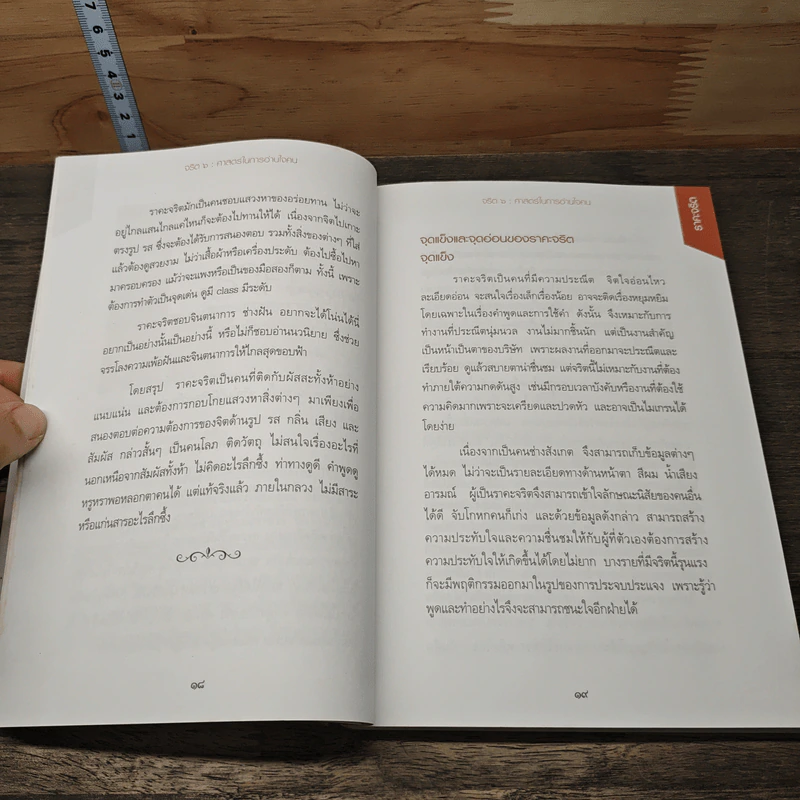 7
6
5
4
3
2
1
จริต ๖ : ศาสตร์ในการอ่านใจคน
ราคะจริตมักเป็นคนชอบแสวงหาของอร่อยทาน ไม่ว่าจะ
อยู่ไกลแสนไกลแค่ไหนก็จะต้องไปทานให้ได้ เนื่องจากจิตไปเกาะ
ตรงรูป รส ซึ่งจะต้องได้รับการสนองตอบ รวมทั้งสิ่งของต่างๆ ที่ใส่
แล้วต้องดูสวยงาม ไม่ว่าเสื้อผ้าหรือเครื่องประดับ ต้องไปซื้อไปหา
มาครอบครอง แม้ว่าจะแพงหรือเป็นของมือสองก็ตาม ทั้งนี้ เพราะ
ต้องการทำตัวเป็นจุดเด่น ดูมี class มีระดับ
ราคะจริตชอบจินตนาการ ช่างฝัน อยากจะได้โน่นได้นี่
อยากเป็นอย่างนั้นเป็นอย่างนี้ หรือไม่ก็ชอบอ่านนวนิยาย ซึ่งช่วย
จรรโลงความเพ้อฝันและจินตนาการให้ไกลสุดขอบฟ้า
โดยสรุป ราคะจริตเป็นคนที่ติดกับผัสสะทั้งห้าอย่าง
แนบแน่น และต้องการกอบโกยแสวงหาสิ่งต่างๆ มาเพียงเพื่อ
สนองตอบต่อความต้องการของจิตด้านรูป รส กลิ่น เสียง และ
สัมผัส กล่าวสั้นๆ เป็นคนโลภ ติดวัตถุ ไม่สนใจเรื่องอะไรที่
นอกเหนือจากสัมผัสทั้งห้า ไม่คิดอะไรลึกซึ้ง ท่าทางดูดี คำพูดดู
หรูหราพอหลอกตาคนได้ แต่แท้จริงแล้ว ภายในกลวง ไม่มีสาระ
หรือแก่นสารอะไรลึกซึ้ง
๑๘
จริต ๖ : ศาสตร์ในการอ่านใจคน
ราคะจริต
จุดแข็งและจุดอ่อนของราคะจริต
จุดแข็ง
ราคะจริตเป็นคนที่มีความประณีต จิตใจอ่อนไหว
ละเอียดอ่อน จะสนใจเรื่องเล็กเรื่องน้อย อาจจะติดเรื่องหยุมหยิม
โดยเฉพาะในเรื่องคำพูดและการใช้คำ ดังนั้น จึงเหมาะกับการ
ทำงานที่ประณีตนุ่มนวล งานไม่มากชิ้นนัก แต่เป็นงานสำคัญ
เป็นหน้าเป็นตาของบริษัท เพราะผลงานที่ออกมาจะประณีตและ
เรียบร้อย ดูแล้วสบายตาน่าชื่นชม แต่จริตนี้ไม่เหมาะกับงานที่ต้อง
ทำภายใต้ความกดดันสูง เช่นมีกรอบเวลาบังคับหรืองานที่ต้องใช้
ความคิดมากเพราะจะเครียดและปวดหัว และอาจเป็นไมเกรนได้
โดยง่าย
เนื่องจากเป็นคนช่างสังเกต จึงสามารถเก็บข้อมูลต่างๆ
ได้หมด ไม่ว่าจะเป็นรายละเอียดทางด้านหน้าตา สีผม น้ำเสียง
อารมณ์ ผู้เป็นราคะจริตจึงสามารถเข้าใจลักษณะนิสัยของคนอื่น
ได้ดี จับโกหกคนก็เก่ง และด้วยข้อมูลดังกล่าว สามารถสร้าง
ความประทับใจและความชื่นชมให้กับผู้ที่ตัวเองต้องการสร้าง
ความประทับใจให้เกิดขึ้นได้โดยไม่ยาก บางรายที่มีจริตนี้รุนแรง
ก็จะมีพฤติกรรมออกมาในรูปของการประจบประแจง เพราะรู้ว่า
พูดและทำอย่างไรจึงจะสามารถชนะใจอีกฝ่ายได้
๑๙